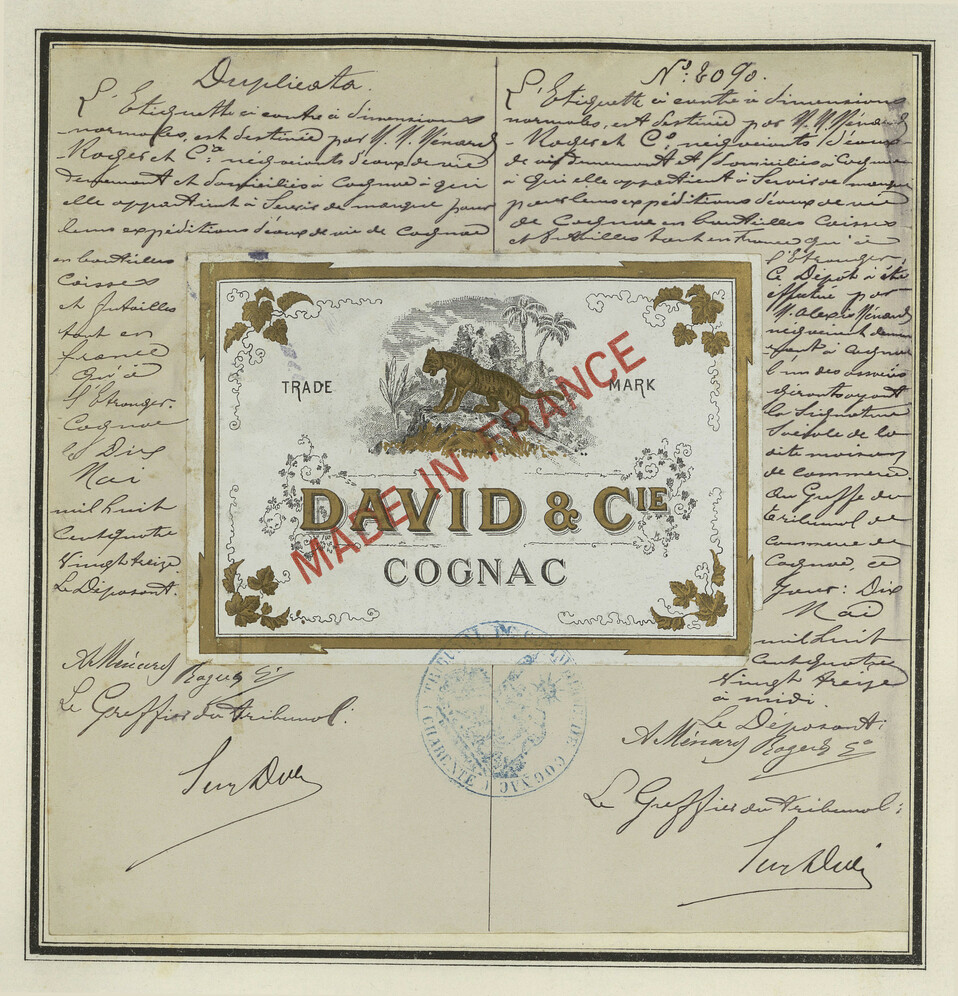 Duplicata.
L'Etiquette ci contre à dimensions
normales, est destinée par M. M. Ménard
Roger et Cie négociants d'eaux de vie
demeurant et domiciliés à Cognac à qui
elle appartient à Servir de marque pour
leurs expéditions d'eaux de vie de Cognac
en bouteilles
Caisses
et futailles
tant en
france
qu'à
l'Etranger.
Cognac
Dix
Mai
mil huit
Cent quatre
Vingt treize.
Le Déposant.
A Ménard Roger & Co
Le Greffier du tribunal:
No. 2090.
L'Etiquette ci contre à dimensions
normales, est destinée par M. M. Ménard
Roger et Co, négociants d'eaux
de vie demeurant et domiciliés à Cognac
à qui elle appartient à Servir de marque
pour leurs expéditions d'eaux de vie
de Cognac en bouteilles Caisses
et futailles tant en France qu'à
l'Etranger,
Ce Dépôt a été
effectué par
M. Alexis Ménard
négociant demeu
rant à Cognac
l'un des associés
gérants ayant
la Signature
Sociale de la
dite maison
de commerce
Au Greffe du
tribunal de
Commerce de
Cognac, ce
Jour: Dix
Mai
mil huit
Cent quatre
Vingt treize
à midi.
Le Déposant:
A Ménard Roger & Co
Le Greffier du tribunal:
TRADE MARK
MADE IN FRANCE
DAVID & CIE
COGNAC
TRIBUNAL DE COMMERCE DE COGNAC
(CHARENTE)